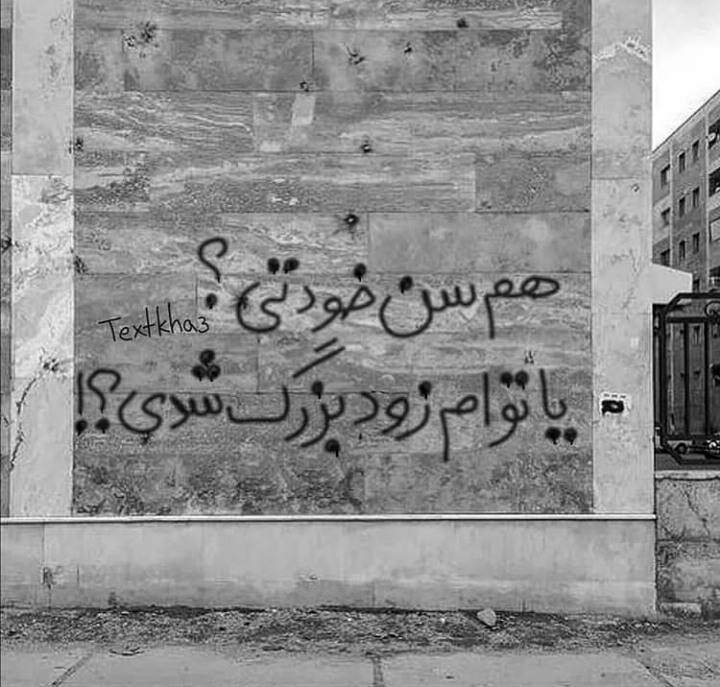 هم سن خودتی؟
Textkha3
یا توام زود بزرگ شدی؟!